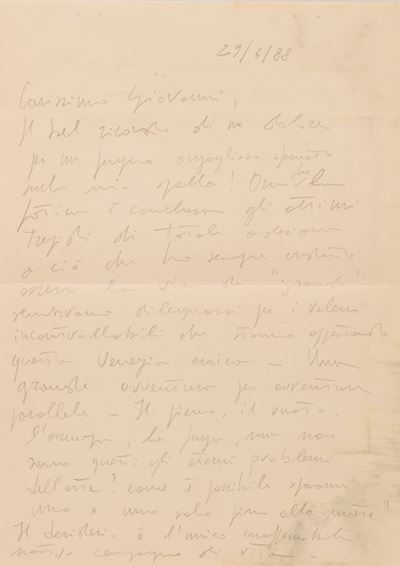 29/6/88
Carissimo Giovanni,
Il bel ricordo di un dolore
per un pugno orgoglioso
sulla mia spalla! Ora che la
è conclusa gli attimi
di totale adesione
a ciò che ho sempre creduto
essere la via dei "grandi"
sembravano dileguarsi per i veleni
incontrollabili che stanno
questa Venezia eroica – Una
grande avventura per avventure
parallele – Il pieno, il vuoto,
l'assenza, la fuga, ma non
sono questi gli eterni problemi
dell'arte? come è possibile
uno e uno solo fino alla morte?
Il desiderio è l'unico inafferrabile
nostro compagno di vita –